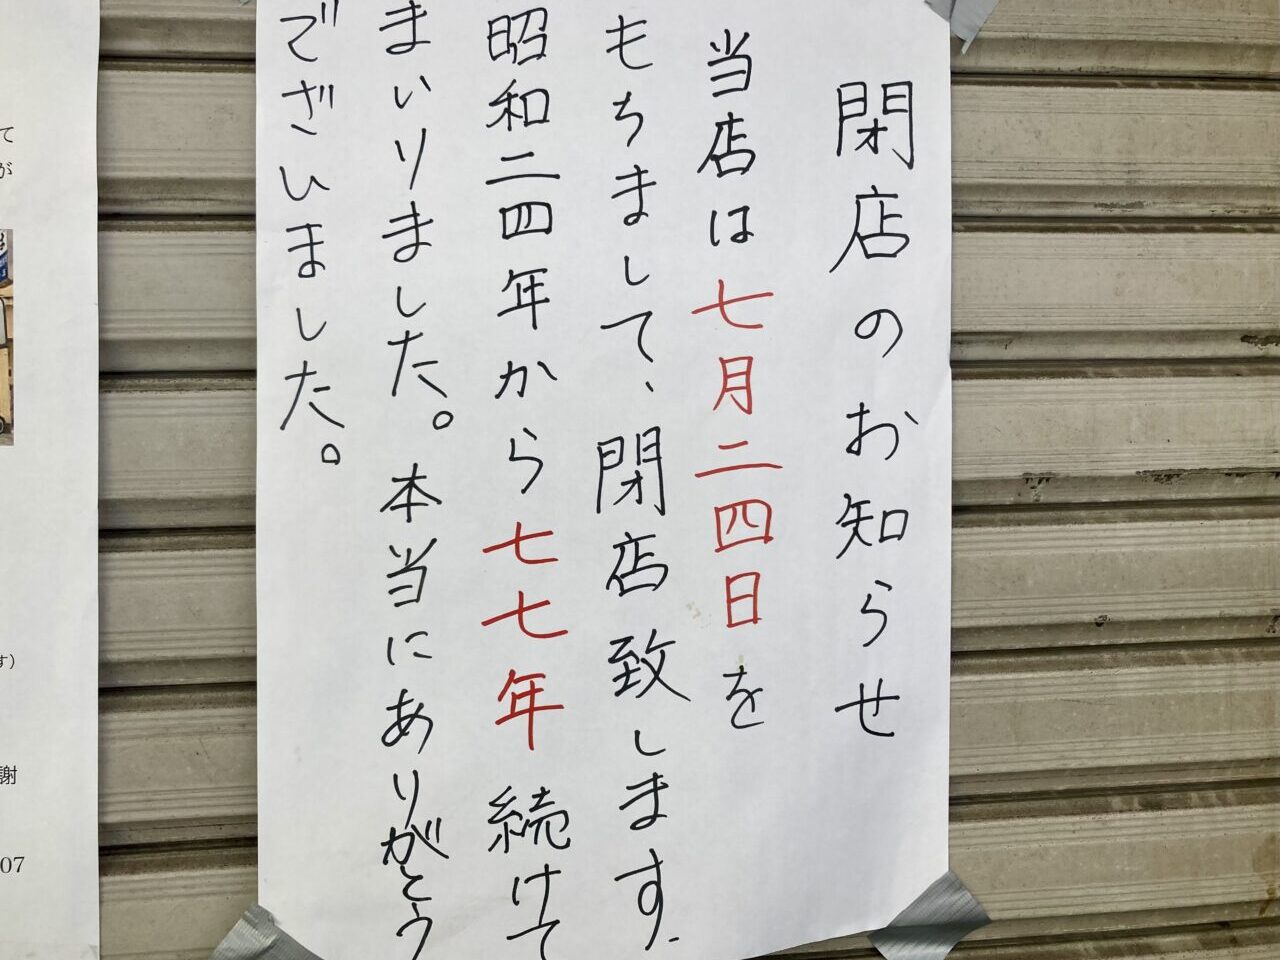 閉店のお知らせ
当店は七月二四日を
もちまして、閉店致します.
昭和二四年から七七年続けて
まいりました。本当にありがとう
でざいました。
て
が
す)
謝
07